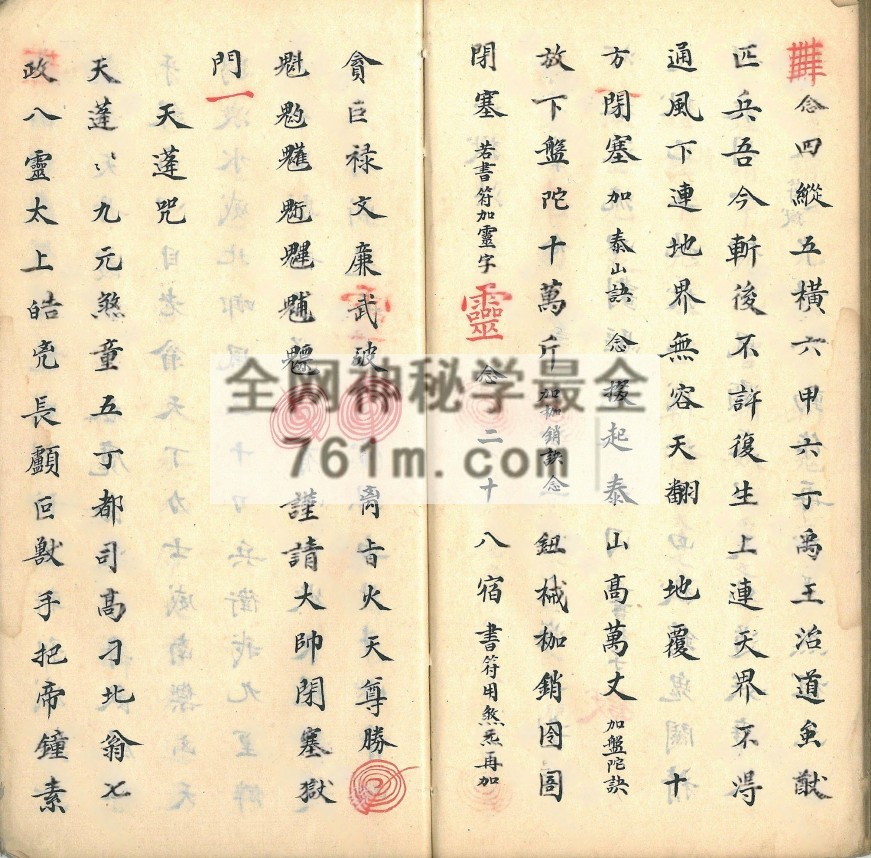 念四縱五橫六甲六丁禹王治道蚩猷
匹兵吾今斬後不許復生上連天界不淂
通風下連地界無容天翻地覆十
方閉塞加泰山訣念撥起泰山髙萬丈加盤陀訣
放下盤陀十萬斤加枷銷訣念鈕械枷銷囹圄
閉塞若書符加靈字靈念二十八宿書符用煞炁再加
貪巨祿文廉武破火天尊勝
魁𩲃䰢魓謹請大帥閉塞獄
門
天蓬咒
天蓬〻九元煞童五丁都司髙刁北翁七
政八靈太上皓兇長顱巨獸手把帝鐘素
全网神秘学最全
761m.com